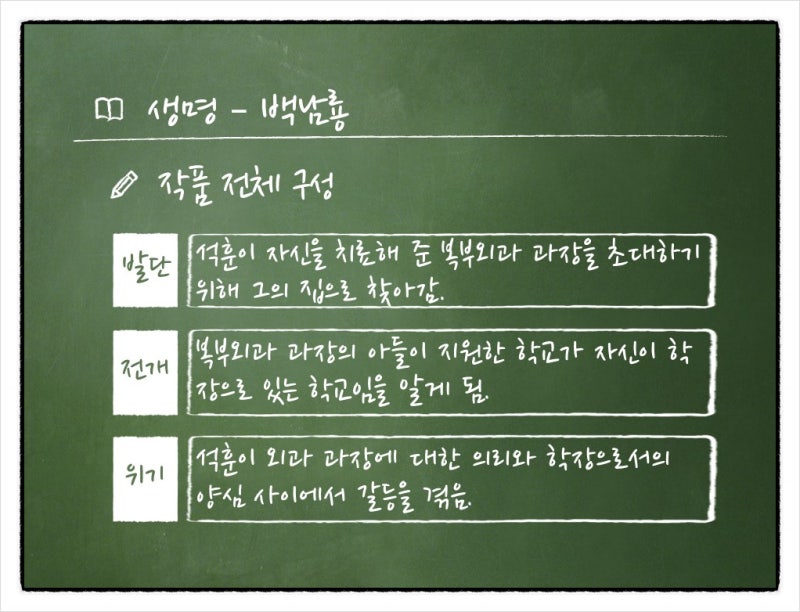 생명 - 백남룡
작품 전체 구성
발단
석훈이 자신을 치료해 준 복부외과 과장을 초대하기
위해 그의 집으로 찾아감.
전개
복부외과 과장의 아들이 지원한 학교가 자신이 학
장으로 있는 학교임을 알게 됨.
위기
석훈이 외과 과장에 대한 의리와 학장으로서의
양심 사이에서 갈등을 겪음.